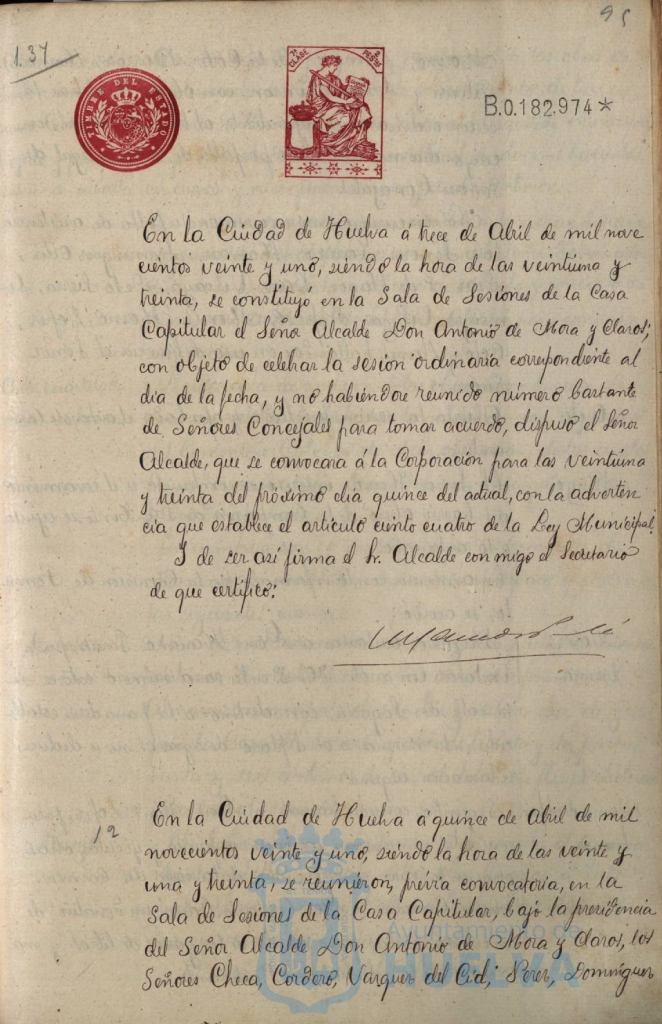 95
1.37
TIMBRE DEL ESTADO
7ª CLASE
2 PESETAS
B.0.182.974*
En la Ciudad de Huelva á trece de Abril de mil nove
cientos veinte y uno, siendo la hora de las veintiuna y
treinta, se constituyó en la Sala de Sesiones de la Casa
Capitular el Señor Alcalde Don Antonio de Mora y Claros;
con objeto de celebrar la sesión ordinaria correspondiente al
dia de la fecha, y no habiéndose reunido número bastante
de Señores Concejales para tomar acuerdo, dispuso el Señor
Alcalde, que se convocara á la Corporación para las veintiuna
y treinta del próximo dia quince del actual, con la adverten
cia que establece el articulo ciento cuatro de la Ley Municipal.
Y de ser así firma el Sr. Alcalde con migo el Secretario
de que certifico:
12
En la Ciudad de Huelva á quince de Abril de mil
novecientos veinte y uno, siendo la hora de las veinte y
una y treinta, se reunieron, prévia convocatoria, en la
Sala de Sesiones de la Casa Capitular, bajo la presidencia
del Señor Alcalde Don Antonio de Mora y Claros, los
Señores Checa, Cordero, Vazquez del Cid, Perez, Dominguez
Ayuntamiento de
HUELVA